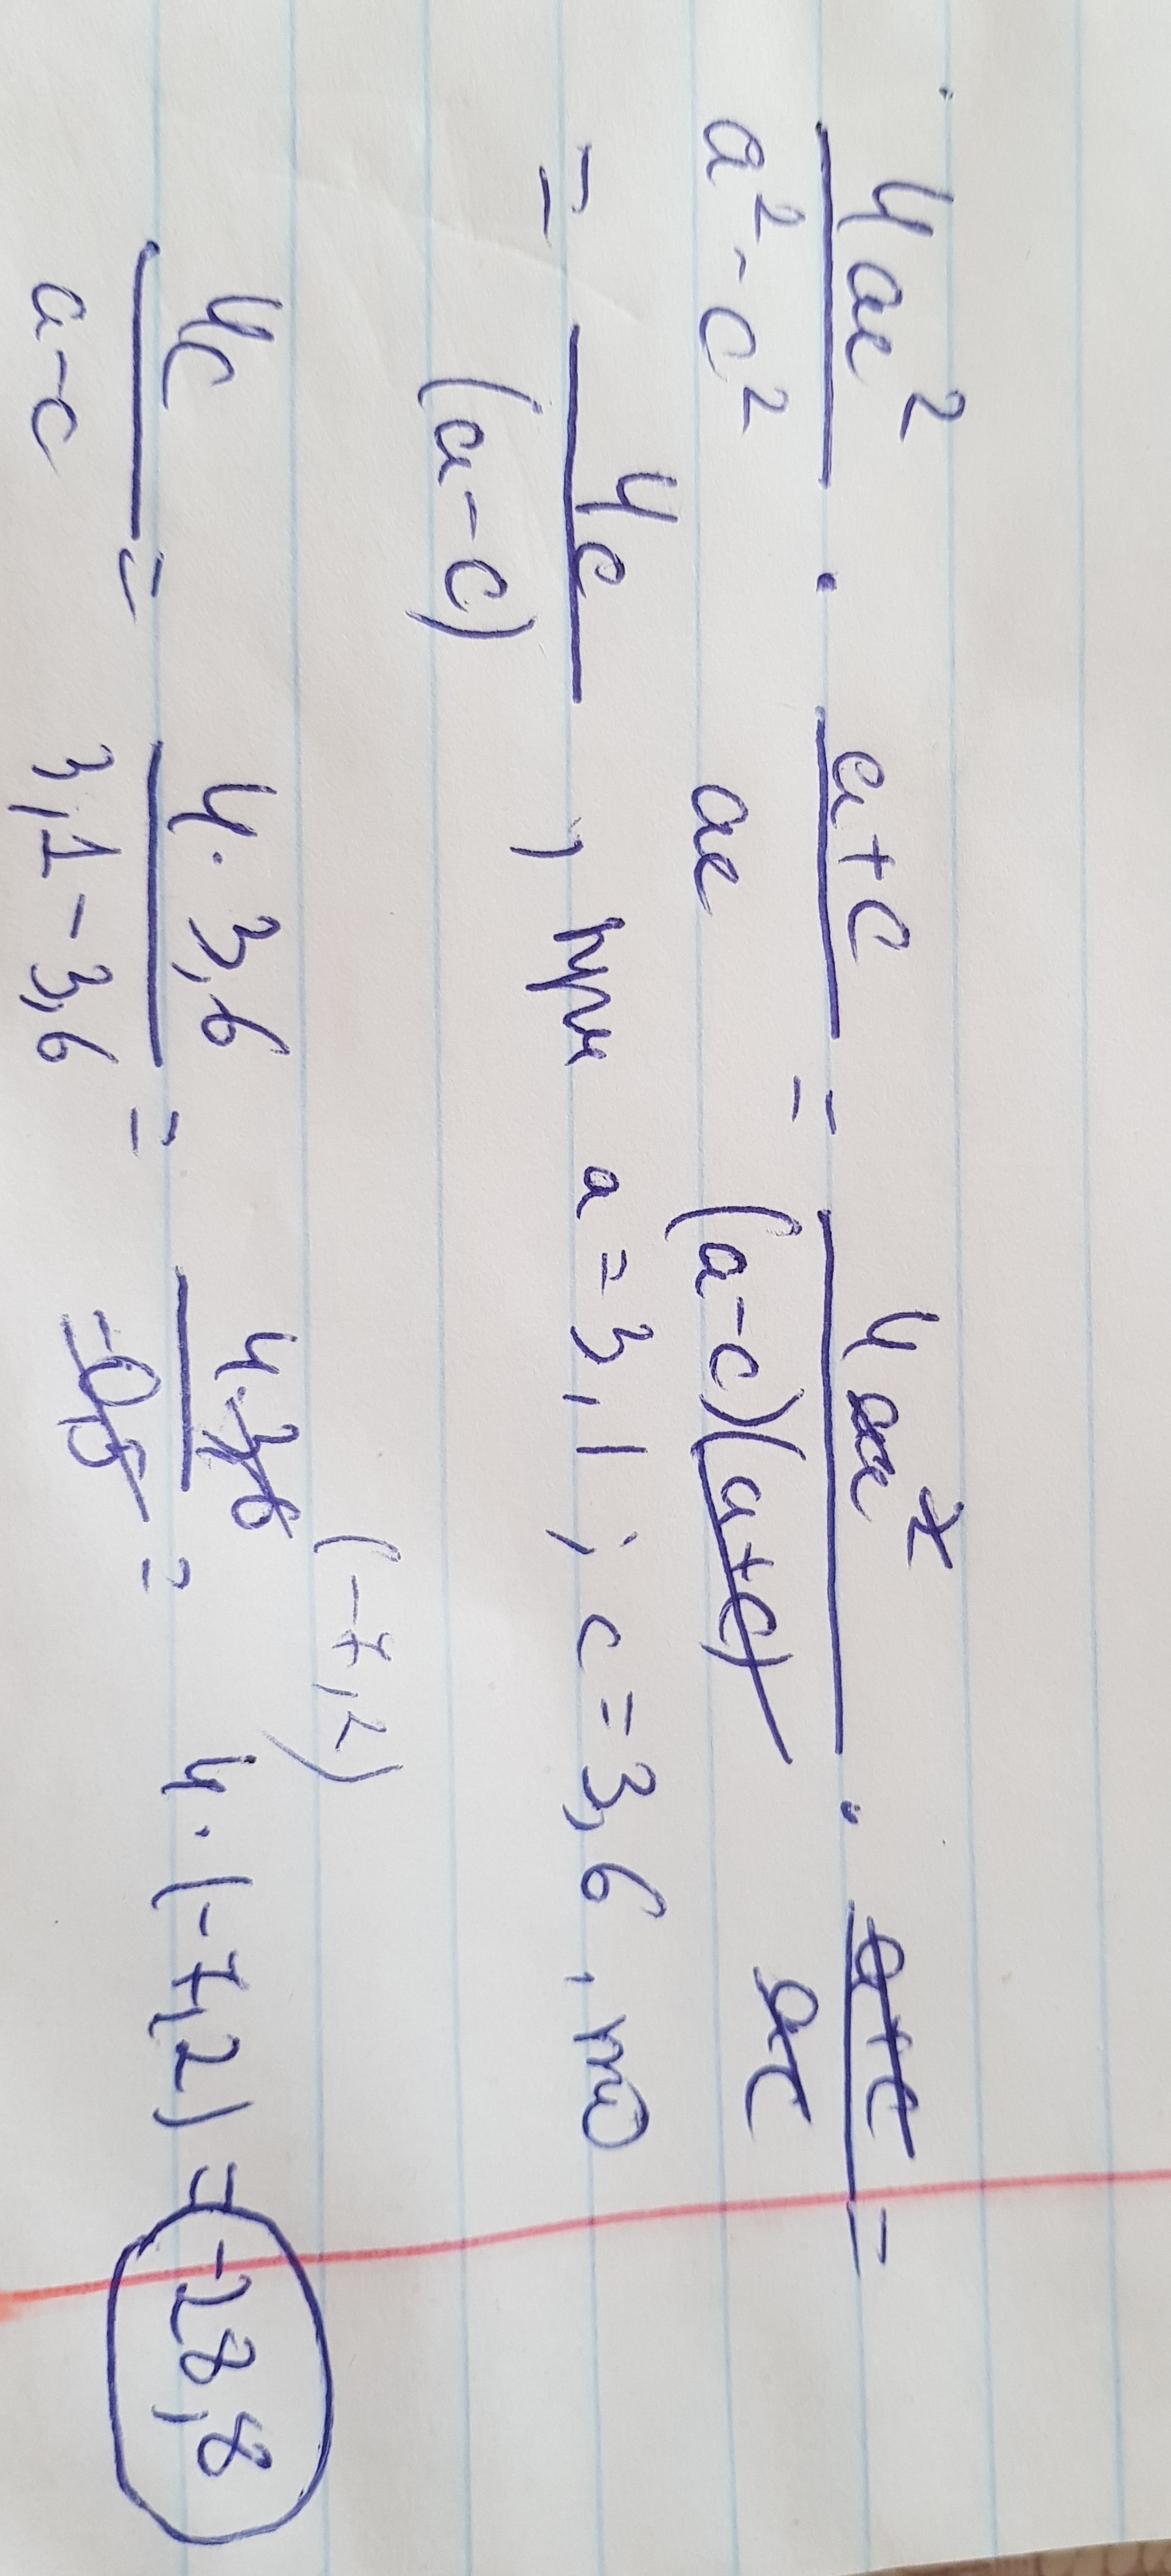 4ac² / a²-c² · a+c / ac = 4ac² / (a-c)(a+c) · a+c / ac =
= 4c / (a-c) , при a=3,1; c=3,6, то
4c / a-c = 4·3,6 / 3,1-3,6 = 4·3,6 (-7,2) / -0,5 = 4·(-7,2) = -28,8